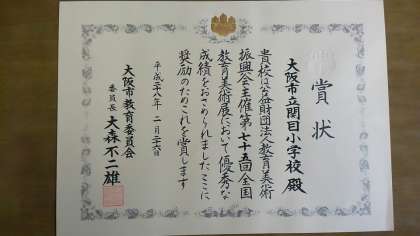 賞状
大阪市立関目小学校殿
貴校は公益財団法人教育美術
振興会主催第七十五回全国
教育美術展において優秀な
成績をおさめられましたここに
奨励のためこれを賞します
平成二十八年 二月二十六日
大阪市教育委員会
委員長 大森不二雄